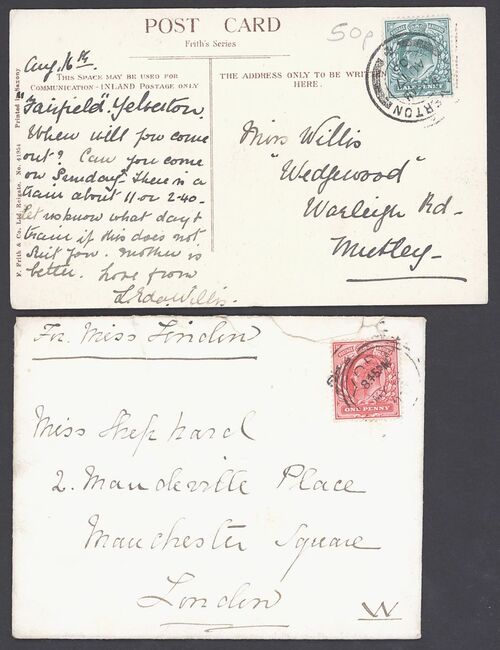 POST CARD
Frith's Series
50p
THIS SPACE MAY BE USED FOR
COMMUNICATION - INLAND POSTAGE ONLY
THE ADDRESS ONLY TO BE WRITTEN
HERE.
HALF PENNY
ERTON
F. Frith & Co. Ltd. Reigate. No. 41954 Printed in Saxony
Aug. 16th
"Fairfield" Yelverton.
When will you come
out? Can you come
on Sunday? There is a
train about 11 or 2-40-
let us know what day &
train if this does not
suit you. Mother is
better. Love from
Willis.
Miss Willis
"Wedgewood"
Warleigh Rd-
Mutley-
For Miss Lindon
ONE PENNY
8.45 PM
Miss Shephard
2. Mandeville Place
Manchester Square
London
W